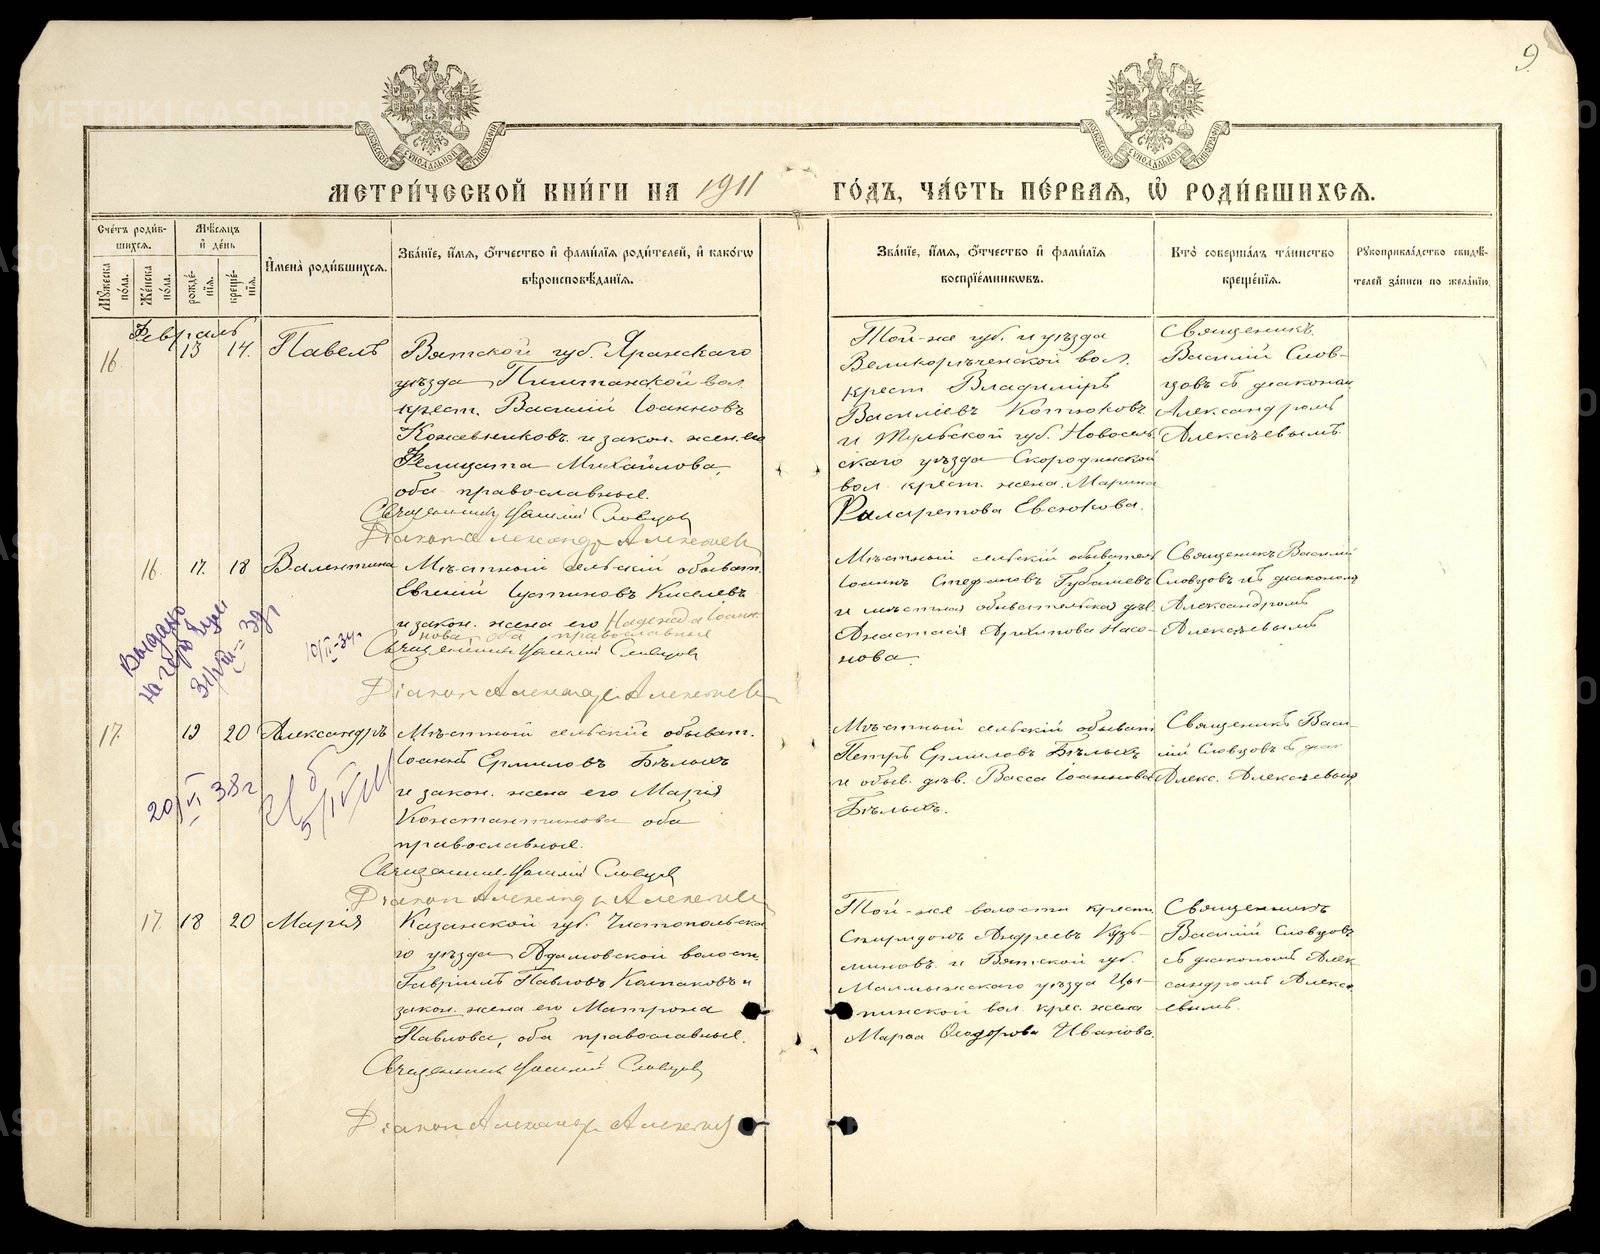 9
МОСКОВСКОЙ СѴНОДАЛЬНОЙ ТИПОГРАФІИ
МОСКОВСКОЙ СѴНОДАЛЬНОЙ ТИПОГРАФІИ
МЕТРИ́ЧЕСКОЙ КНИ́ГИ НА 1911 ГО́ДЪ, ЧА́СТЬ ПЕ́РВАЯ, Ѡ҆ РОДИ́ВШИХСЯ.
Сче́тъ роди́в-
шихся.
Мѣ́сяцъ
и҆ де́нь
Мꙋ́жеска
по́ла.
Же́нска
по́ла.
рожде́-
нїя.
креще́-
нїя.
И҆мена̀ роди́вшихся.
Зва́нїе, и҆́мя, ѻ҆́тчество и҆ фами́лїя роди́телей, и҆ како́гѡ
вѣроисповѣ́данїя.
Зва́нїе, и҆́мя, ѻ҆́тчество и҆ фами́лїя
воспрїе́мникѡвъ.
Кто̀ соверша́лъ та́инство
креще́нїя.
Рꙋкоприкла́дство свидѣ́-
телей за́писи по жела́нїю.
Февраль
16. 13 14. Павелъ
Вятской губ. Яранскаго
уѣзда Пиштанской вол.
крест. Василій Іоанновъ
Кожевниковъ и закон. жен. его
Фелицата Михайлова,
оба православные.
Священникъ Василій Словцовъ
Діаконъ Александръ Алексѣевъ
Той-же губ. и уѣзда
Великорѣченской вол.
крест Владиміръ
Василіевъ Котюковъ
и Тульской губ. Новосиль-
скаго уѣзда Скородинской
вол. крест. жена Марина
Филаретова Евсюкова.
Священникъ
Василій Слов-
цовъ съ діаконом
Александромъ
Алексѣевымъ.
16. 17. 18 Валентина
Мѣстный сельскій обыват.
Евгеній Іустиновъ Киселевъ
и закон. жена его Надежда Іоанн-
нова, оба православные
Священникъ Василій Словцовъ
Діаконъ Александръ Алексѣевъ
Мѣстный сельскій обыватель
Іоаннъ Стефановъ
и мѣстная обывательская дѣв.
Анастасія Архипова Насо-
нова.
Священникъ Василій
Словцовъ съ діакономъ
Александромъ
Алексѣевымъ
Выдано
на герб
31/VIII-39г
10/II-34г
17. 19 20 Александръ
Мѣстный сельскій обыват.
Іоаннъ Ермиловъ Бѣлыхъ
и закон. жена его Марія
Константинова оба
православные.
Священникъ Василій Словцовъ
Діаконъ Александръ Алексѣевъ
Мѣстный сельскій обыват
Петръ Ермиловъ Бѣлыхъ
и обыв. дѣв. Васса Іоаннова
Бѣлыхъ.
Священникъ Васи-
лій Словцовъ съ діак
Алекс. Алексѣевым
20/VI 38г
17. 18 20 Марія
Казанской губ. Чистопольска-
го уѣзда Адамовской волости
Гавріилъ Павловъ Колпаковъ и
закон. жена его Матрона
Павлова, оба православные.
Священникъ Василій Словцовъ
Діаконъ Александръ Алексѣевъ
Той-же волости крест.
Спиридонъ Андреевъ Кузь-
миновъ и Вятской губ.
Малмыжскаго уѣзда Цы-
пинской вол. крес. жена
Марѳа Ѳеодорова Иванова.
Священникъ
Василій Словцовъ
съ діакономъ Алек-
сандромъ Алексѣ-
евымъ.
METRIKI.GASO-URAL.RU